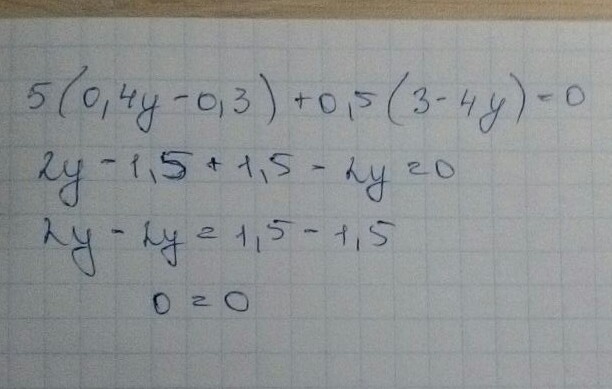 5(0,4y-0,3)+0,5(3-4y)=0
2y-1,5+1,5-2y=0
2y-2y=1,5-1,5
0=0